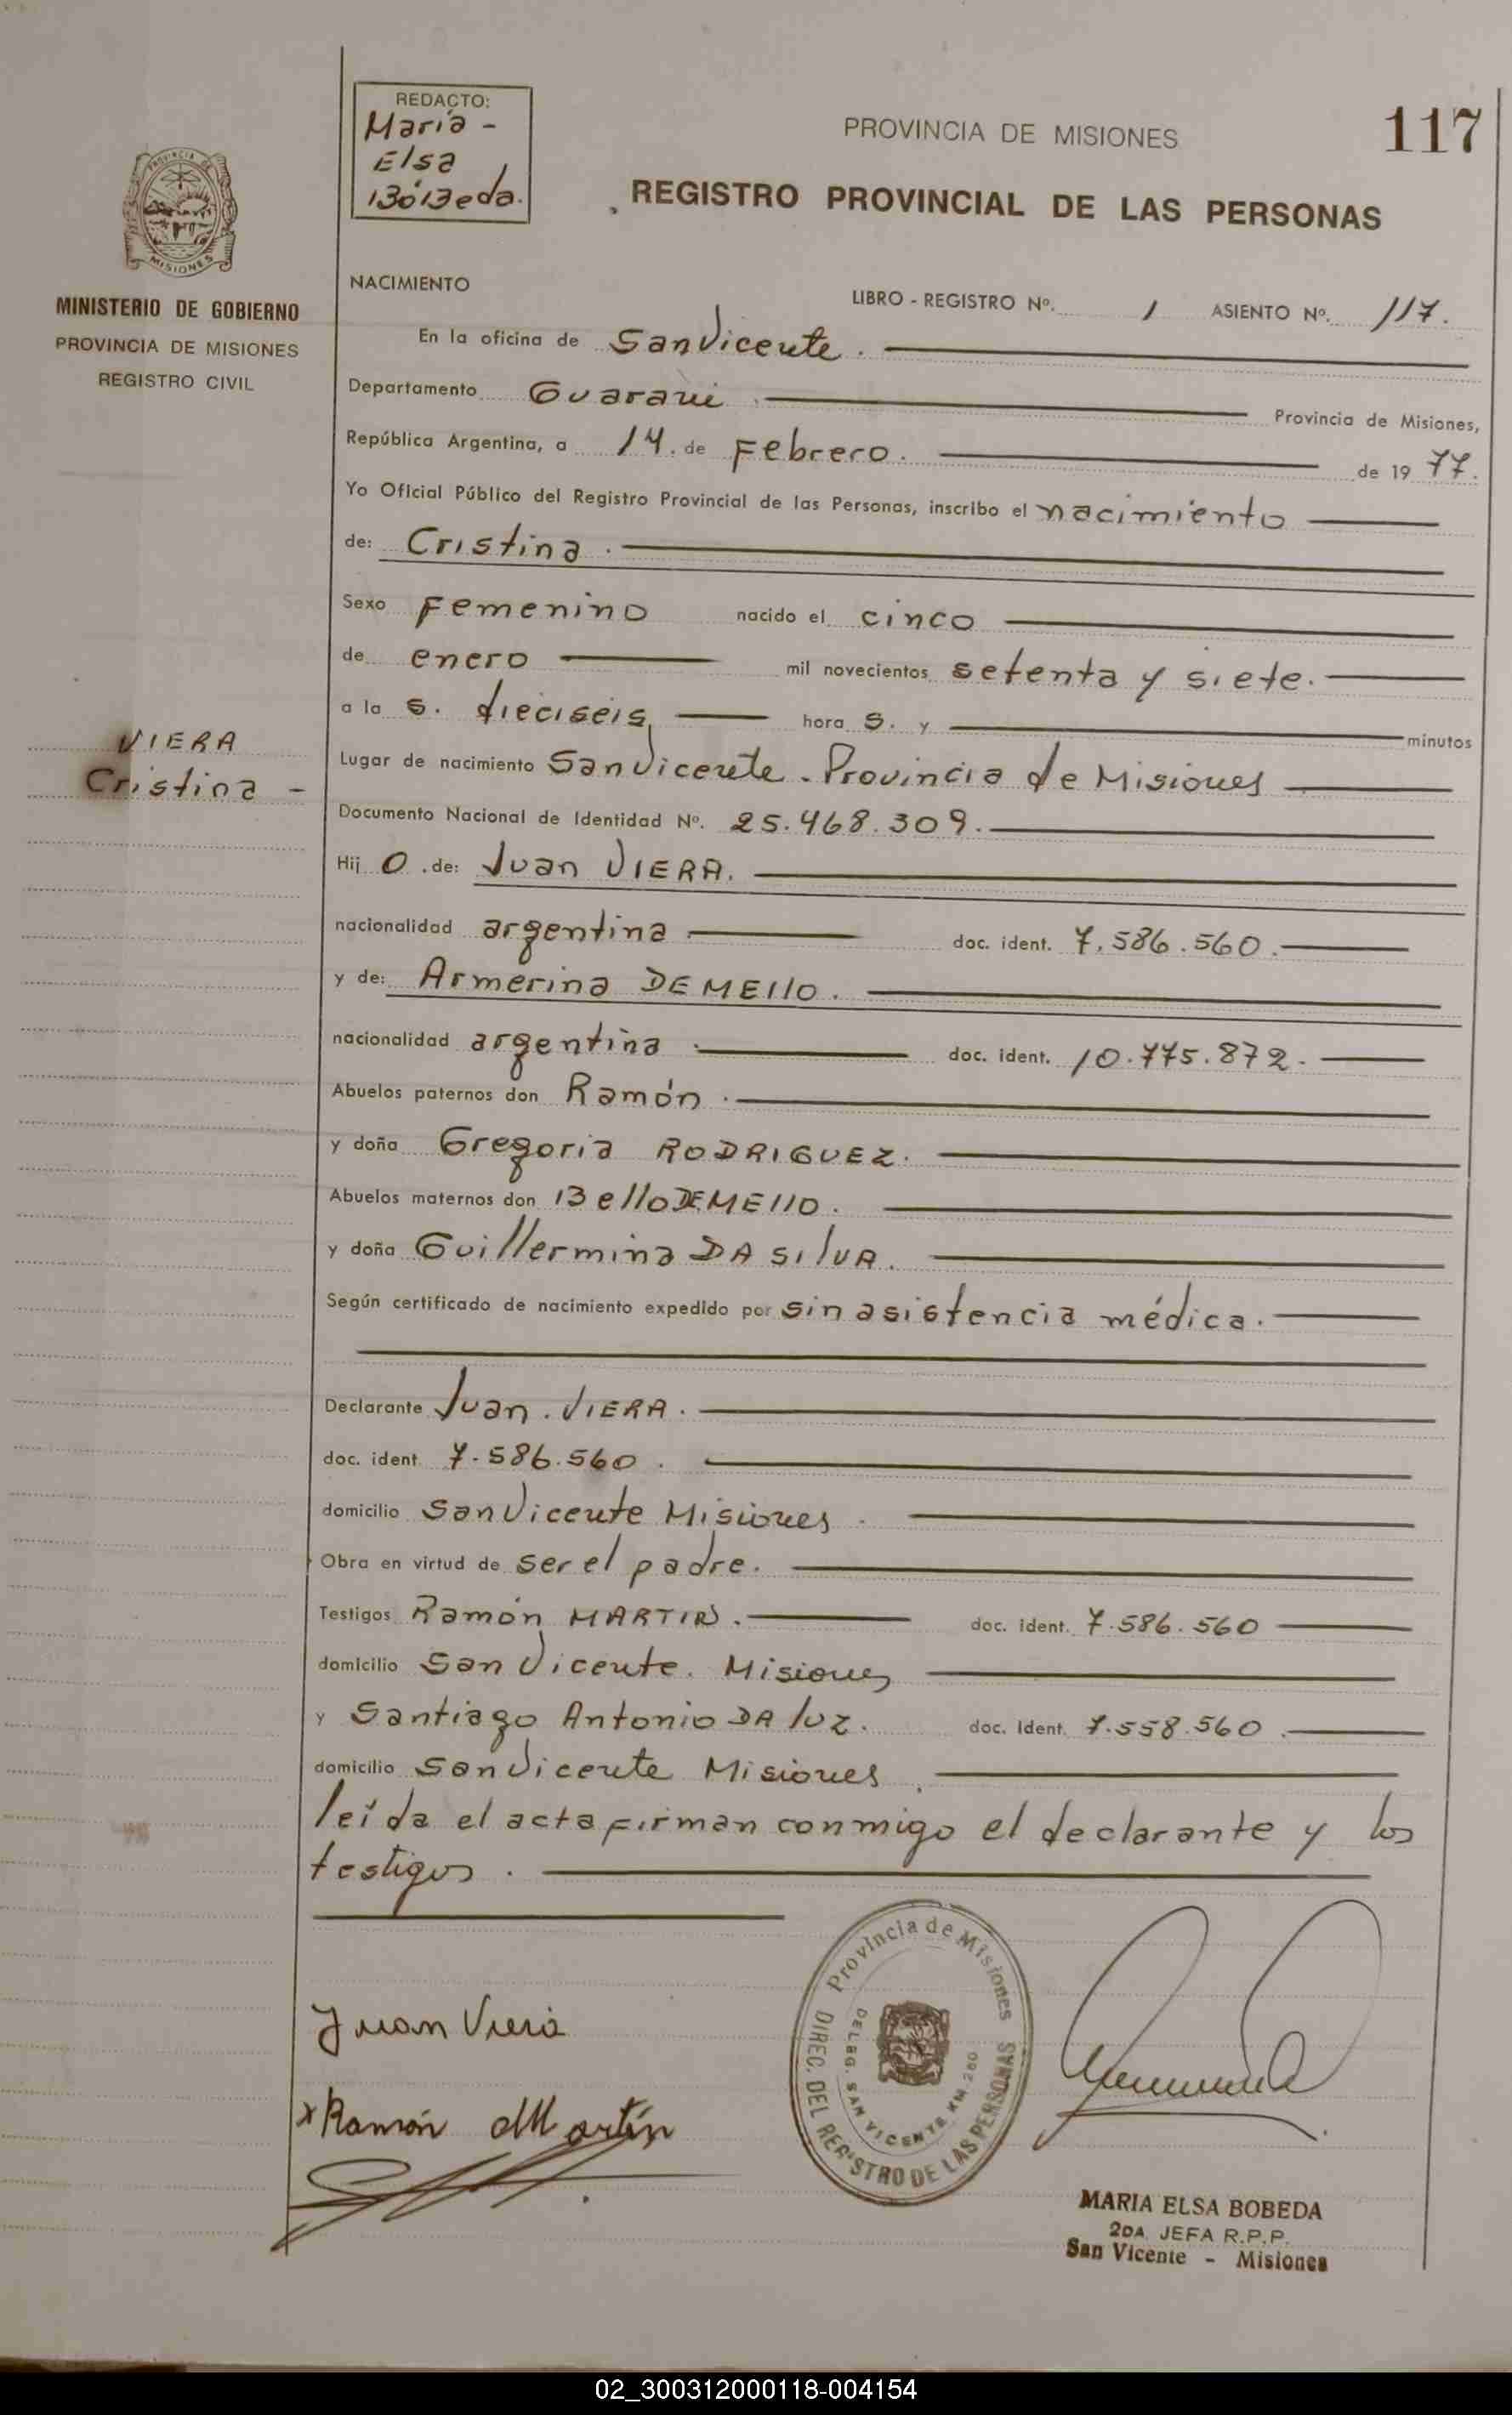 REDACTO:
Maria -
Elsa
Bóbeda.
PROVINCIA DE MISIONES
117
REGISTRO PROVINCIAL DE LAS PERSONAS
PROVINCIA DE
MISIONES
MINISTERIO DE GOBIERNO
PROVINCIA DE MISIONES
REGISTRO CIVIL
NACIMIENTO
LIBRO - REGISTRO Nº. 1 ASIENTO Nº. 117.
En la oficina de San Vicente.
Departamento Guarani Provincia de Misiones,
República Argentina, a 14. de Febrero. de 19 77.
Yo Oficial Público del Registro Provincial de las Personas, inscribo el nacimiento
de: Cristina.
Sexo Femenino nacido el cinco
de enero mil novecientos setenta y siete.
a la s. dieciseis hora s. y minutos
VIERA
Cristina -
Lugar de nacimiento San Vicente. Provincia de Misiones
Documento Nacional de Identidad Nº. 25.468.309.
Hij o .de: Juan VIERA.
nacionalidad argentina doc. ident. 7.586.560.
y de: Armerina DE MEllO.
nacionalidad argentina doc. ident. 10.775.872.
Abuelos paternos don Ramón.
y doña Gregoria RODRIGUEZ.
Abuelos maternos don Bello DE MEllO.
y doña Guillermina DA SIlVA.
Según certificado de nacimiento expedido por sin asistencia médica.
Declarante Juan. VIERA.
doc. ident. 7.586.560.
domicilio San Vicente Misiones.
Obra en virtud de ser el padre.
Testigos Ramón MARTIN. doc. ident. 7.586.560
domicilio San Vicente. Misiones
y Santiago Antonio DA luz. doc. Ident. 7.558.560.
domicilio San Vicente Misiones.
leída el acta firman conmigo el declarante y los
testigos.
Juan Viera
x Ramón Martín
Provincia de Misiones
DIREC. DEL REGISTRO DE LAS PERSONAS
DELEG. SAN VICENTE KM. 260
MARIA ELSA BOBEDA
2DA. JEFA R.P.P.
San Vicente - Misiones
02_300312000118-004154